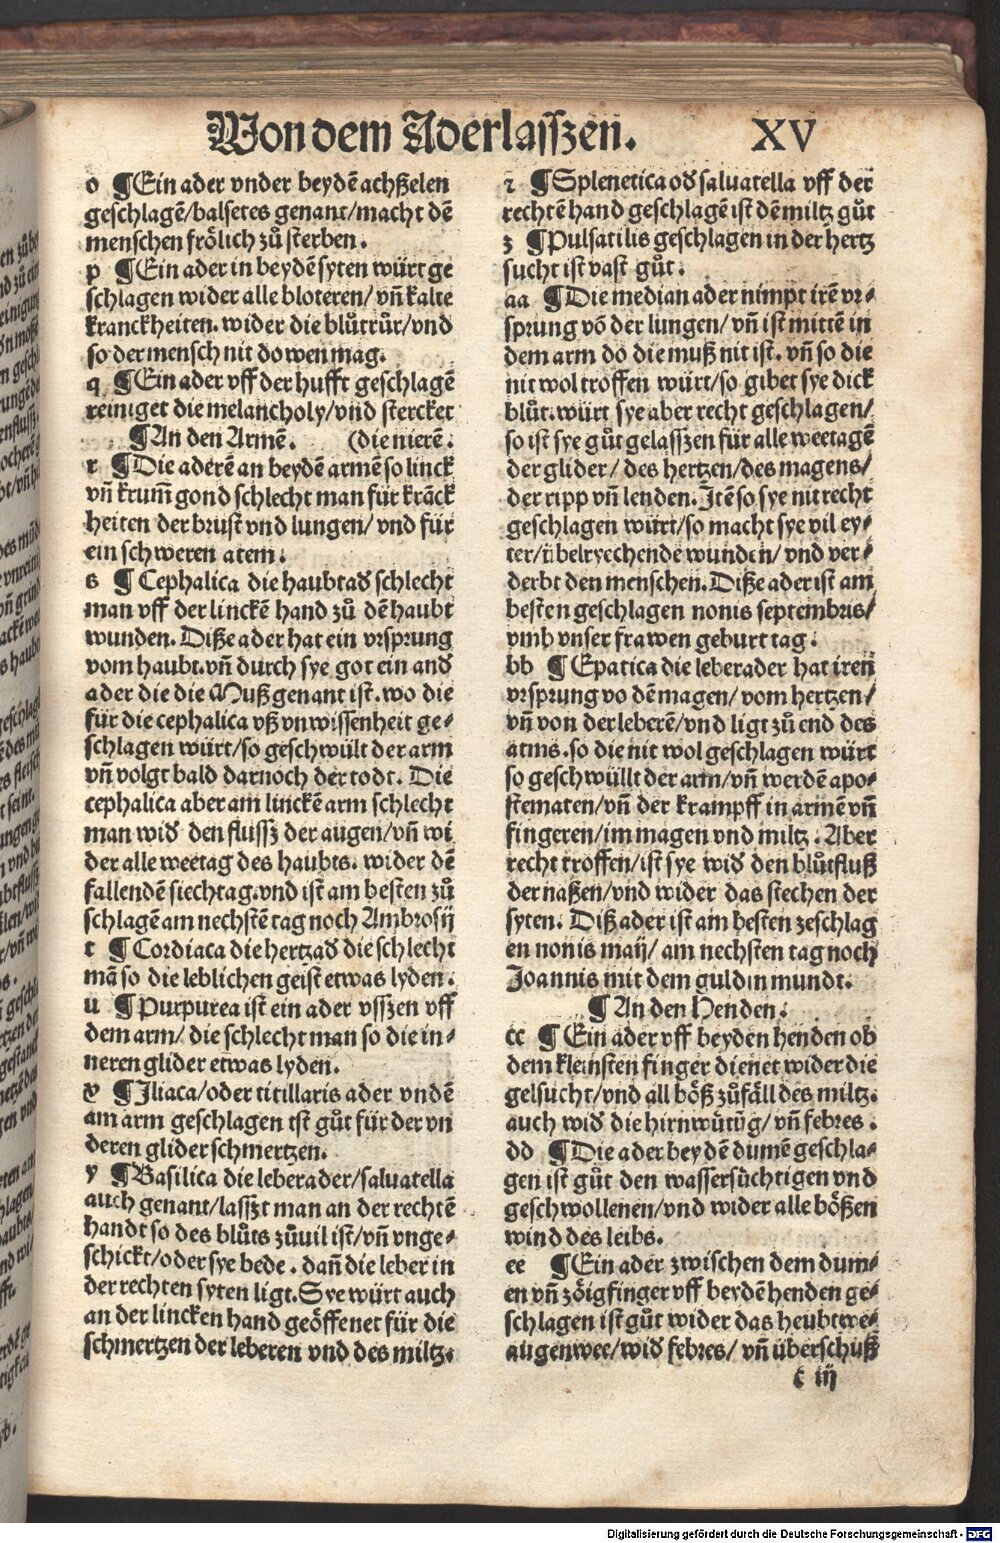 Von dem Aderlasszen. XV
o ¶ Ein ader vnder beydē achßelen
geschlagē/balsetes genant/macht dē
menschen frölich zů sterben.
p ¶ Ein ader in beydē syten würt ge
schlagen wider alle bloteren/vn̄ kalte
kranckheiten. wider die blůtrůr/vnd
so der mensch nit dowen mag.
q ¶ Ein ader vff der hufft geschlagē
reiniget die melancholy/vnd stercket
¶ An den Armē. (die nierē.
r ¶ Die aderē an beydē armē so linck
vn̄ krum̄ gond schlecht man für krāck
heiten der brust vnd lungen/vnd für
ein schweren atem.
s ¶ Cephalica die haubtad̄ schlecht
man vff der linckē hand zů dē haubt
wunden. Diße ader hat ein vrsprung
vom haubt. vn̄ durch sye got ein and̄
ader die die Muß genant ist. wo die
für die cephalica vß vnwissenheit ge-
schlagen würt/so geschwült der arm
vn̄ volgt bald darnoch der todt. Die
cephalica aber am linckē arm schlecht
man wid̄ den flussz der augen/vn̄ wi
der alle weetag des haubts. wider dē
fallendē siechtag. vnd ist am besten zů
schlagē am nechstē tag noch Ambrosij
t ¶ Cordiaca die hertzad̄ die schlecht
mā so die leblichen geist etwas lyden.
u ¶ Purpurea ist ein ader vsszen vff
dem arm/die schlecht man so die in-
neren glider etwas lyden.
x ¶ Iliaca/oder titillaris ader vndē
am arm geschlagen ist gůt für der vn
deren glider schmertzen.
y ¶ Basilica die leberader/saluatella
auch genant/lasszt man an der rechtē
handt so des blůts zůuil ist/vn̄ vnge-
schickt/oder sye bede. dan̄ die leber in
der rechten syten ligt. Sye würt auch
an der lincken hand geöffenet für die
schmertzen der leberen vnd des miltz.
z ¶ Splenetica od̄ saluatella vff der
rechtē hand geschlagē ist dē miltz gůt
z ¶ Pulsatilis geschlagen in der hertz
sucht ist vast gůt.
aa ¶ Die median ader nimpt irē vr-
sprung vō der lungen/vn̄ ist mittē in
dem arm do die muß nit ist. vn̄ so die
nit wol troffen würt/so gibet sye dick
blůt. würt sye aber recht geschlagen/
so ist sye gůt gelasszen für alle weetagē
der glider/des hertzen/des magens/
der ripp vn̄ lenden. Itē so sye nit recht
geschlagen würt/so macht sye vil ey-
ter/übelryechende wunden/vnd ver-
derbt den menschen. Diße ader ist am
besten geschlagen nonis septembris/
vmb vnser frawen geburt tag.
bb ¶ Epatica die leberader hat iren
vrsprung vo dē magen/vom hertzen/
vn̄ von der leberē/vnd ligt zů end des
arms. so die nit wol geschlagen würt
so geschwüllt der arm/vn̄ werdē apo-
stematen/vn̄ der krampff in armē vn̄
fingeren/im magen vnd miltz. Aber
recht troffen/ist sye wid̄ den blůtfluß
der naßen/vnd wider das stechen der
syten. Diß ader ist am besten zeschlag
en nonis maij/am nechsten tag noch
Joannis mit dem guldin mundt.
¶ An den Henden.
cc ¶ Ein ader vff beyden henden ob
dem kleinsten finger dienet wider die
gelsucht/vnd all böß zůfäll des miltz.
auch wid̄ die hirnwütūg/vn̄ febres.
dd ¶ Die ader beydē dumē geschla-
gen ist gůt den wassersüchtigen vnd
geschwollenen/vnd wider alle bößen
wind des leibs.
ee ¶ Ein ader zwischen dem dum-
en vn̄ zöigfinger vff beydē henden ge-
schlagen ist gůt wider das heubtwe-
augenwee/wid̄ febres/vn̄ überschuß
c iij
Digitalisierung gefördert durch die Deutsche Forschungsgemeinschaft - DFG